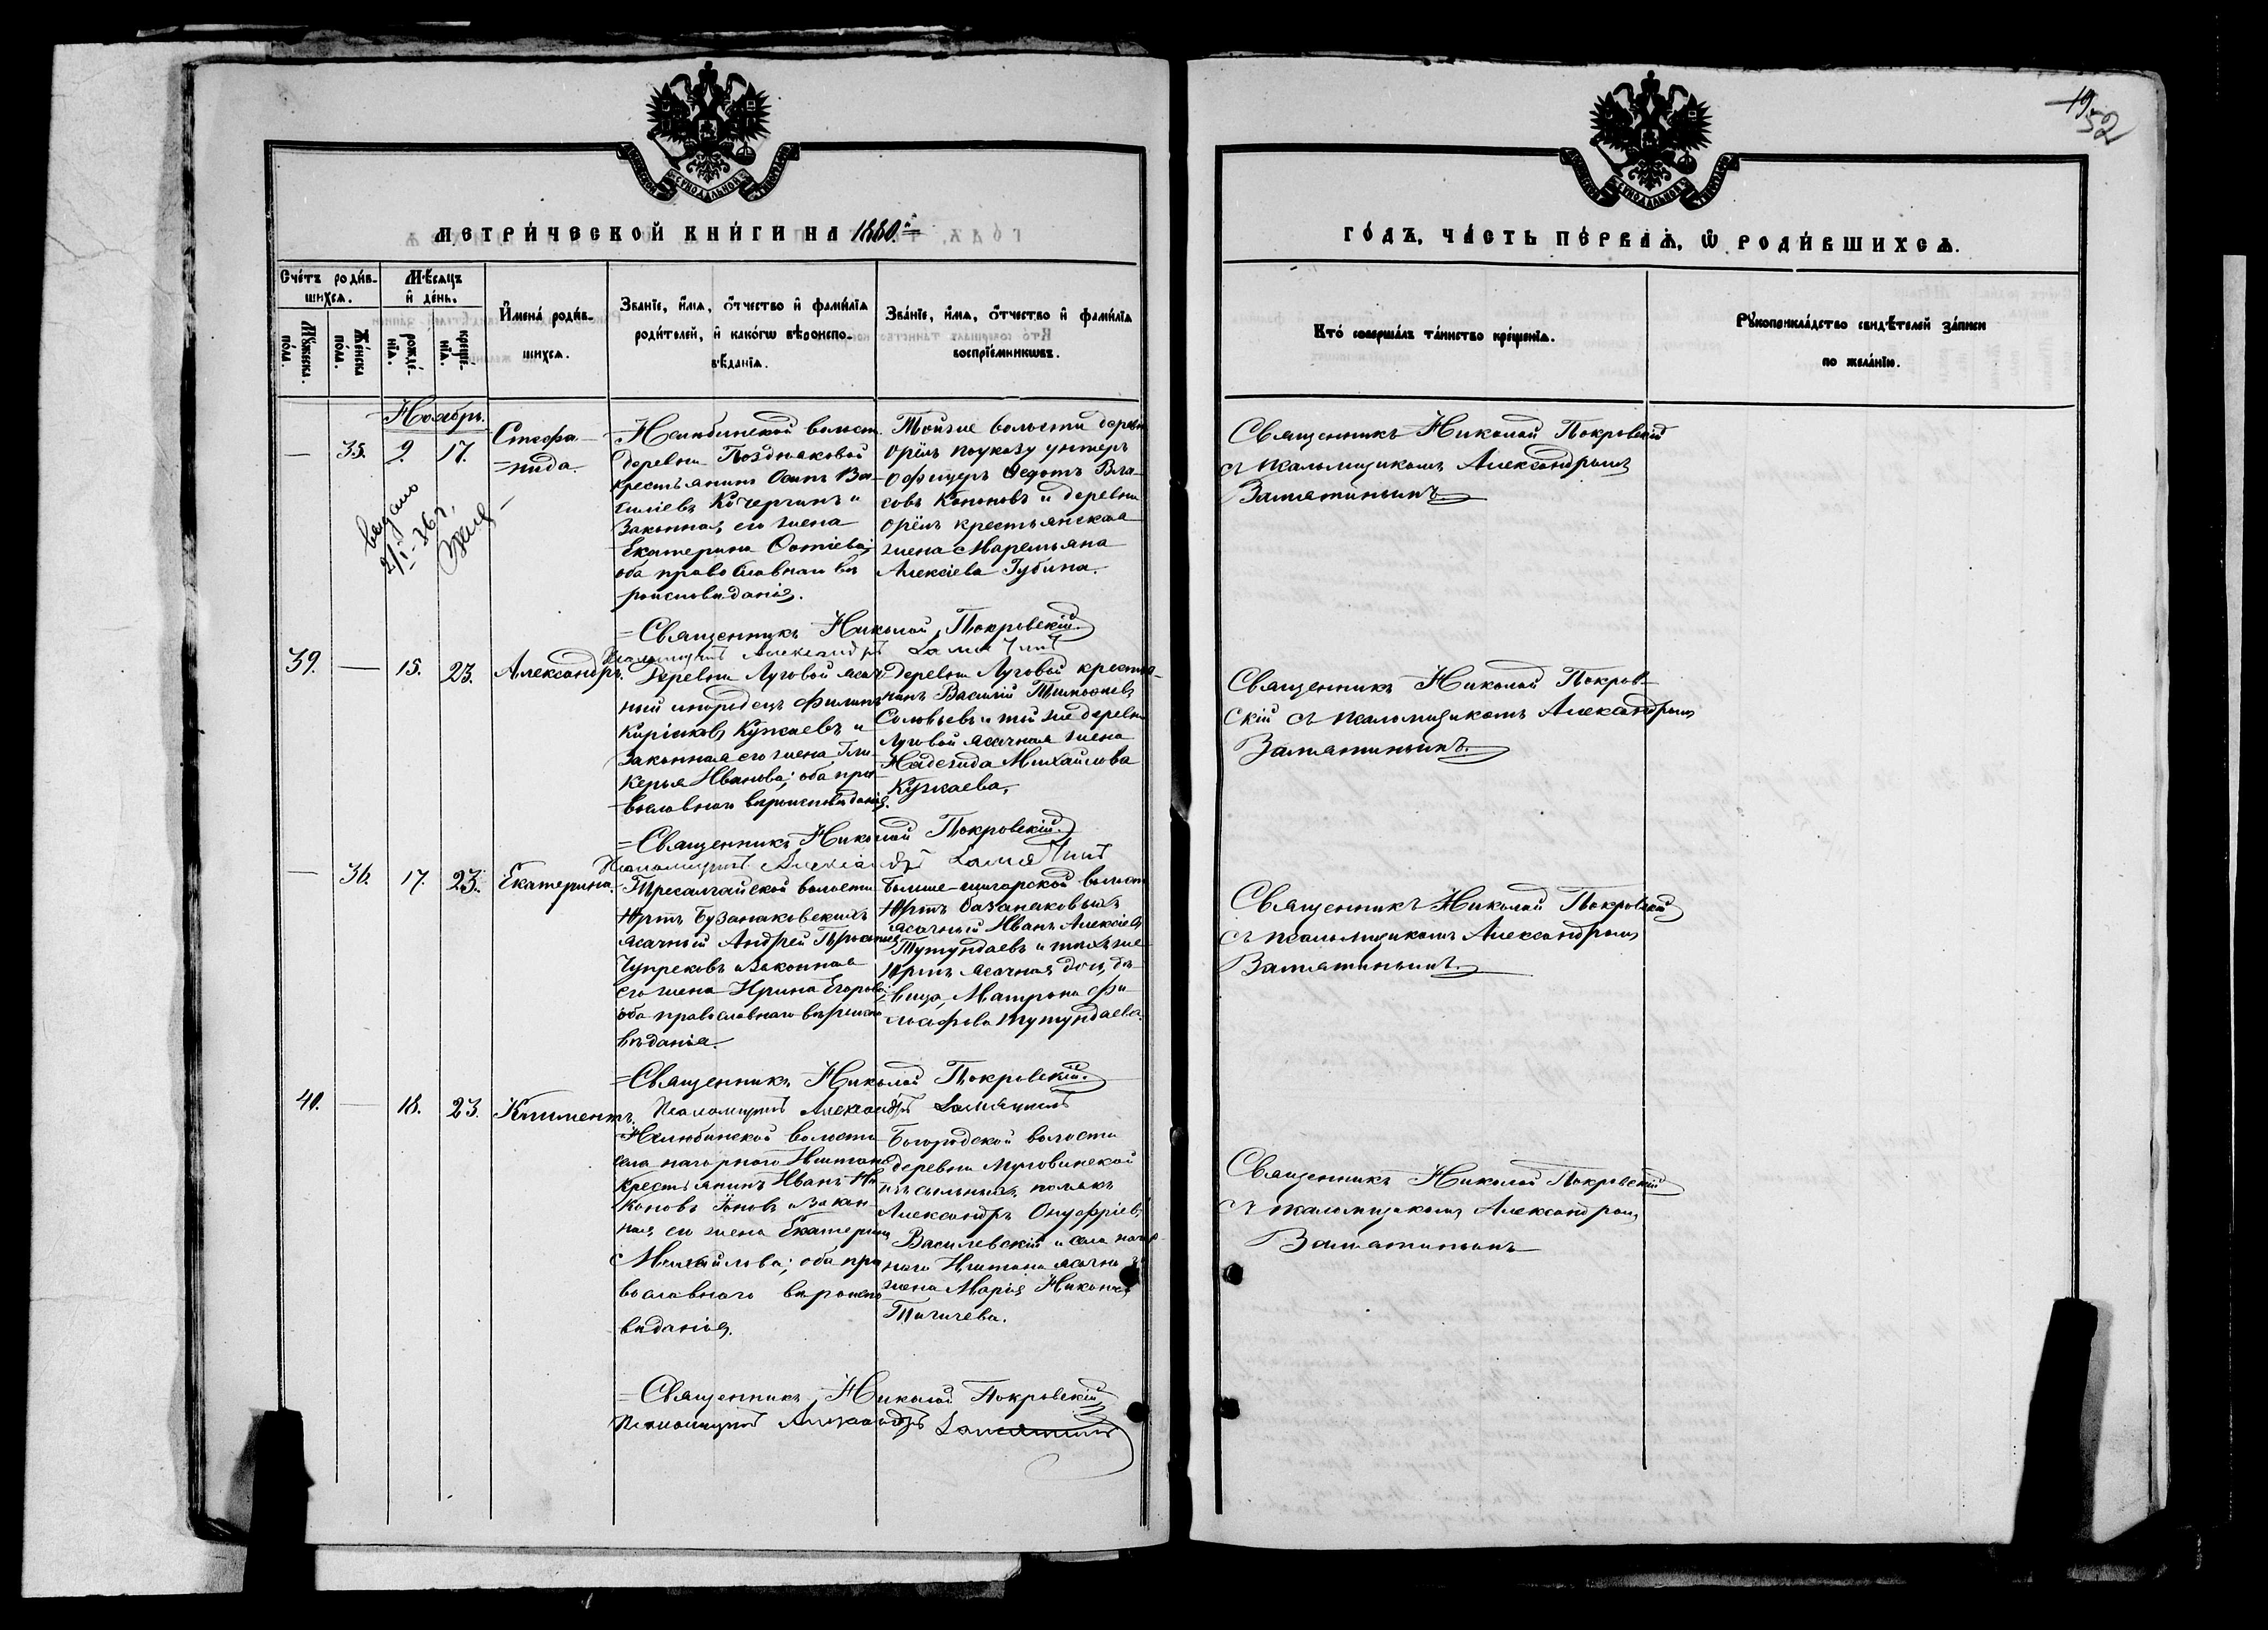 19
52
МЕТРИ́ЧЕСКОЙ КНИ́ГИ НА 1880.й
ГО́ДЪ, ЧА́СТЬ ПЕ́РВАѦ, Ѿ РОДИ́ВШИХСѦ.
Сче́тъ роди́в-
шихсѧ.
Мꙋ́жеска по́ла.
Же́нска по́ла.
Мѣ́сѧцъ
и҆ де́нь.
рожде́-нїѧ.
креще́-нїѧ.
И҆мена̀ роди́в-
шихсѧ.
Зва́нїе, и҆́мѧ, ѻ҆́тчество и҆ фами́лїѧ
роди́телей, и҆ како́гѡ вѣроиспо-
вѣ́данїѧ.
Зва́нїе, и҆́мѧ, ѻ҆́тчество и҆ фами́лїѧ
воспрїе́мникѡвъ.
Кто̀ соверша́лъ та́инство креще́нїѧ.
Рꙋкоприкла́дство свидѣ́телей за́писи
по жела́нїю.
Ноябрь.
— 35. 9. 17.
Стефа-
=нида.
выдано
2/I-36 г.
Нелюбинской волост
деревни Поздняковой
крестьянинъ Осипъ Ва-
силіевъ Кочергинъ и
Законная его жена
Екатерина Фотіева;
оба православнаго вѣ
роисповѣданія.
Тойже волости деревни
Орёлъ поуказу унтеръ
офицеръ Федотъ Вла-
совъ Кононовъ и деревни
Орёлъ крестьянская
жена Маремьяна
Алексіева Губина.
=Священникъ Николай Покровскій
Псаломщикъ Александръ Замятинъ
Священникъ Николай Покровскій
съ псаломщикомъ Александромъ
Замятинымъ
39. — 15. 23. Александръ.
Деревни Луговой ясач
ный инородецъ Филипъ
Киріяковъ Кужаевъ и
Законная его жена Гли-
керья Иванова; оба пра-
вославнаго вѣроисповѣданія.
Деревни Луговой крестья-
нинъ Василій Тимофеевъ
Соловьевъ и той же деревни
Луговой ясачная жена
Надежда Михайлова
Кужаева.
=Священникъ Николай Покровскій
Псаломщикъ Александръ Замятинъ
Священникъ Николай Покров-
скій съ псаломщикомъ Александромъ
Замятинымъ
— 36. 17. 23. Екатерина.
волости
Юртъ Бузанаковскихъ
ясачный Андрей
Чупрековъ и Законная
его жена Ирина Егорова
оба православнаго вѣроиспо
вѣданія.
волост
Юртъ
ясачный Иванъ Алексіевъ
Тутундаевъ и тѣхъ же
Юртъ ясачная дочь, дѣ-
вица, Матрона Фи-
Тутундаева.
=Священникъ Николай Покровскій
Псаломщикъ Александръ Замятинъ
Священникъ Николай Покровскій
съ псаломщикомъ Александромъ
Замятинымъ
40. — 18. 23. Климентъ.
Нелюбинской волости
села нагорного Иштана
крестьянинъ Иванъ Ни
коновъ Іоновъ и Закон-
ная его жена Екатерина
Михайлова; оба пра
вославнаго вѣроиспо
вѣданія.
Богородской волости
деревни
полякъ
Александръ Онуфріевъ
Василевскій и села нагор-
наго Иштана ясачная
жена Марія Никонова
Тигичева.
=Священникъ Николай Покровскій
Псаломщикъ Александръ Замятинъ
Священникъ Николай Покровскій
съ псаломщикомъ Александромъ
Замятинымъ